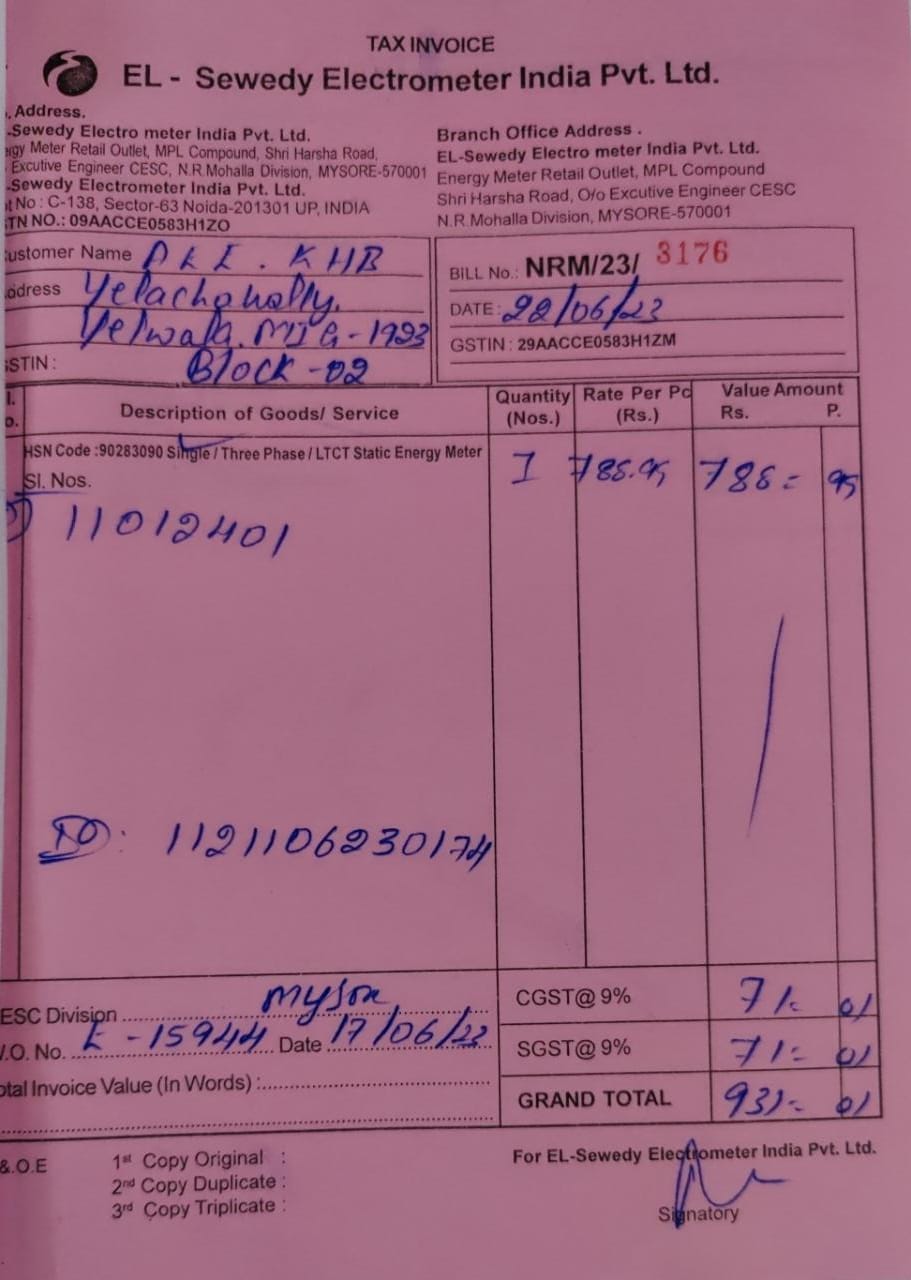 TAX INVOICE
EL - Sewedy Electrometer India Pvt. Ltd.
. Address.
-Sewedy Electro meter India Pvt. Ltd.
rgy Meter Retail Outlet, MPL Compound, Shri Harsha Road,
Excutive Engineer CESC, N.R.Mohalla Division, MYSORE-570001
-Sewedy Electrometer India Pvt. Ltd.
t No : C-138, Sector-63 Noida-201301 UP, INDIA
TN NO.: 09AACCE0583H1ZO
Branch Office Address .
EL-Sewedy Electro meter India Pvt. Ltd.
Energy Meter Retail Outlet, MPL Compound
Shri Harsha Road, O/o Excutive Engineer CESC
N.R.Mohalla Division, MYSORE-570001
ustomer Name KHB
ddress Yelachahally.
Yelwala. MIG-1923
STIN : Block -02
BILL No.: NRM/23/ 3176
DATE : 22/06/23
GSTIN : 29AACCE0583H1ZM
l. Description of Goods/ Service Quantity (Nos.) Rate Per Pc (Rs.) Value Amount Rs. P.
o.
HSN Code :90283090 Single / Three Phase / LTCT Static Energy Meter 1 788.95 788 = 95
Sl. Nos.
11012401
11211062 30174
ESC Division Mysore
.O. No. E -15944 Date 17/06/23
otal Invoice Value (In Words) :
CGST@ 9% 71- 01
SGST@ 9% 71- 01
GRAND TOTAL 931- 01
&.O.E
1st Copy Original :
2nd Copy Duplicate :
3rd Copy Triplicate :
For EL-Sewedy Electrometer India Pvt. Ltd.
Signatory